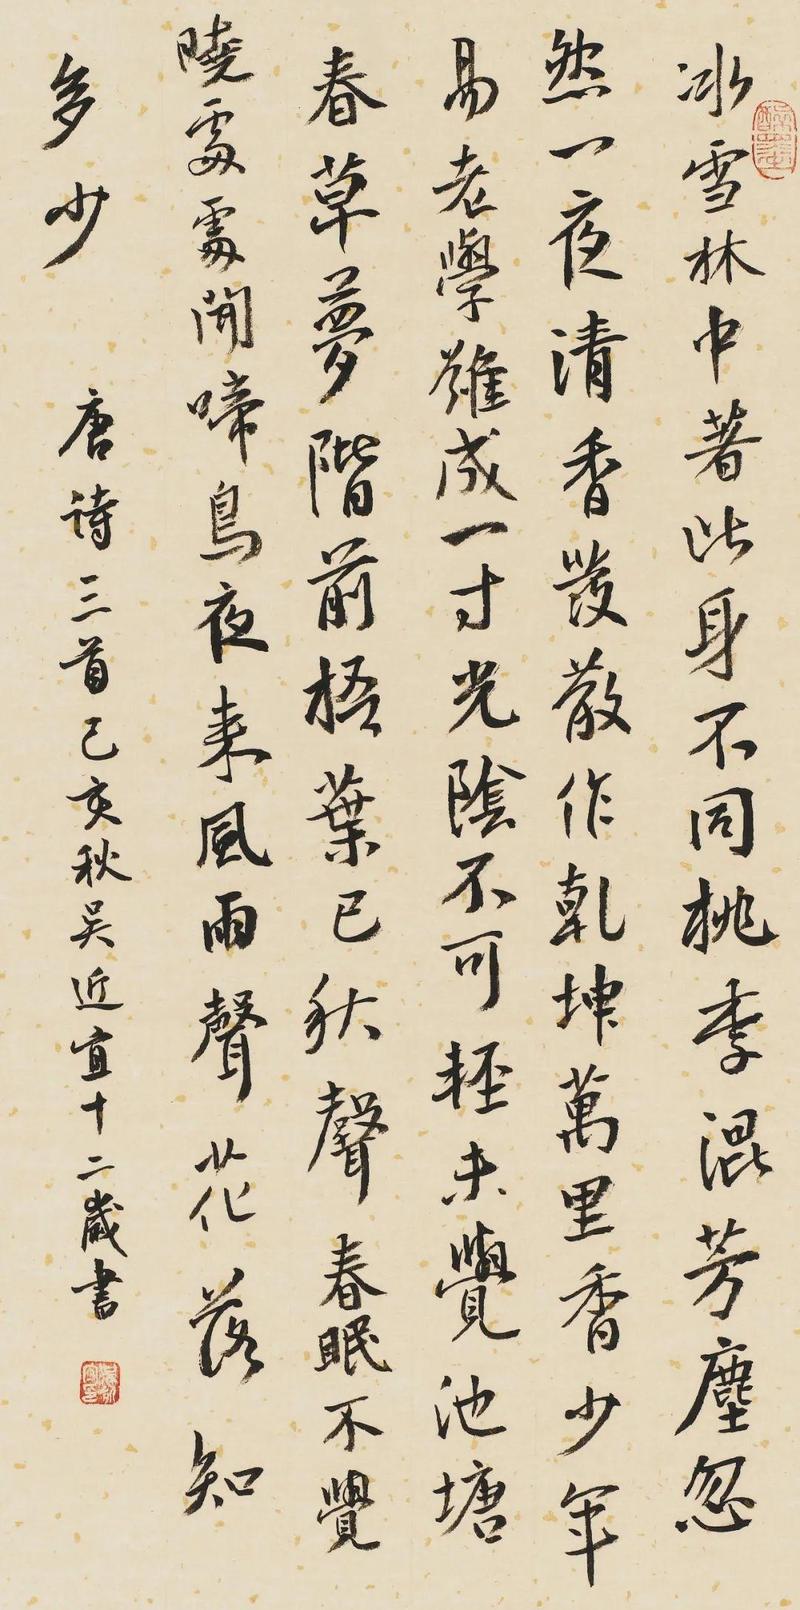 冰雪林中著此身不同桃李混芳塵忽
然一夜清香發散作乾坤萬里香少年
易老學難成一寸光陰不可輕未覺池塘
春草夢階前梧葉已秋聲春眠不覺
曉處處聞啼鳥夜来風雨聲花落知
多少
唐诗三首己亥秋吴近宜十二歲書